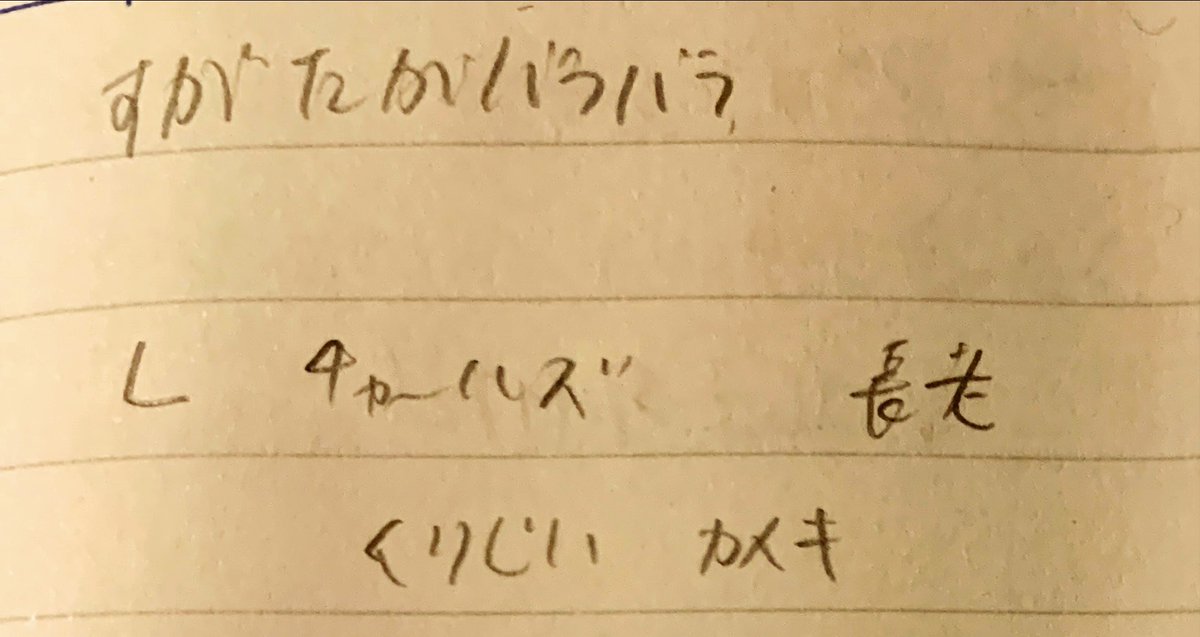 すがたがバラバラ
L チャールズ 長老
くりじい カメキ